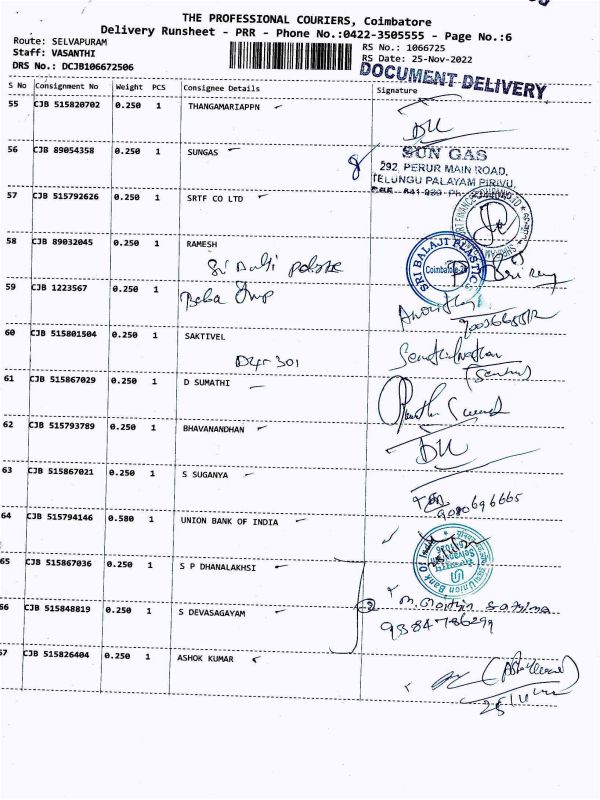 THE PROFESSIONAL COURIERS, Coimbatore
Delivery Runsheet - PRR - Phone No.:0422-3505555 - Page No.:6
Route: SELVAPURAM
RS No.: 1066725
Staff: VASANTHI
RS Date: 25-Nov-2022
DRS No.: DCJB106672506
DOCUMENT DELIVERY
S No Consignment No Weight PCS Consignee Details Signature
55 CJB 515820702 0.250 1 THANGAMARIAPPN
56 CJB 89054358 0.250 1 SUNGAS
8
SUN GAS
292, PERUR MAIN ROAD,
TELUNGU PALAYAM PIRIVU,
57 CJB 515792626 0.250 1 SRTF CO LTD
58 CJB 89032045 0.250 1 RAMESH
SRI BALAJI PLASTICS
Coimbatore
59 CJB 1223567 0.250 1
60 CJB 515801504 0.250 1 SAKTIVEL
301
61 CJB 515867029 0.250 1 D SUMATHI
62 CJB 515793789 0.250 1 BHAVANANDHAN
63 CJB 515867021 0.250 1 S SUGANYA
9080696665
64 CJB 515794146 0.580 1 UNION BANK OF INDIA
Union Bank Of India
65 CJB 515867036 0.250 1 S P DHANALAKHSI
66 CJB 515848819 0.250 1 S DEVASAGAYAM
2
9384786299
67 CJB 515826404 0.250 1 ASHOK KUMAR